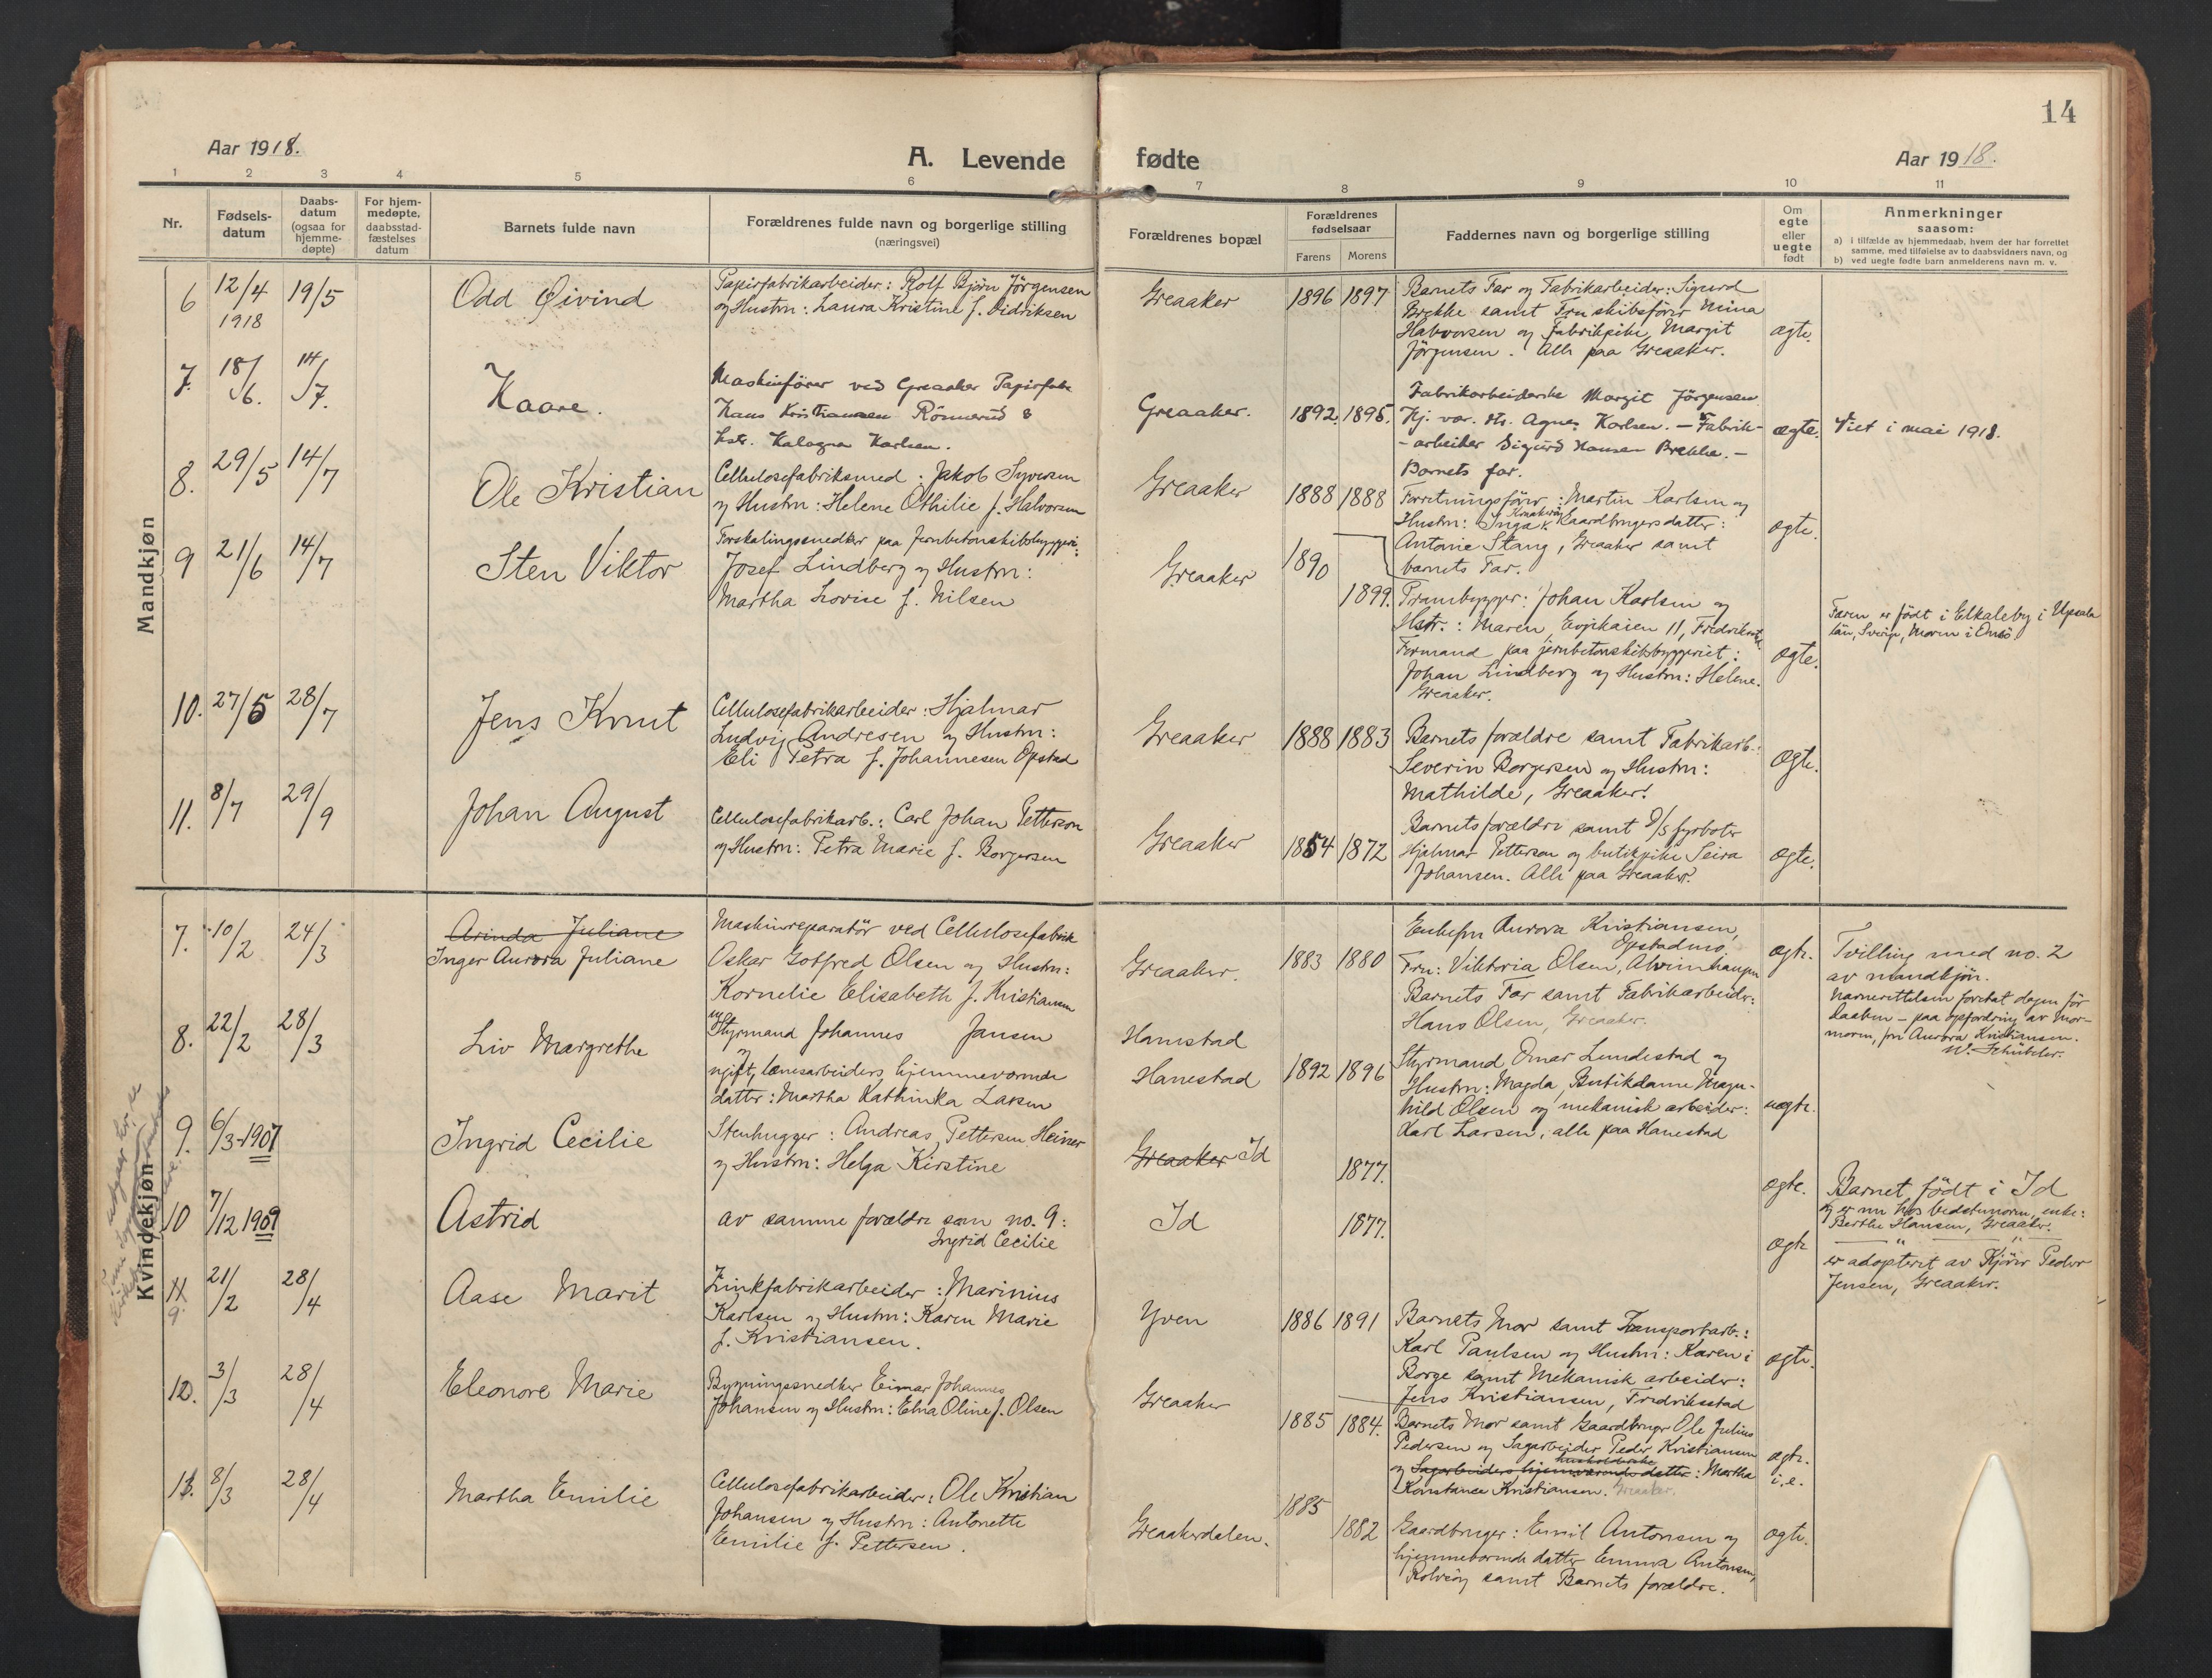 14
Aar 1918.
A. Levende fødte
Aar 1918.
1 2 3 4 5 6 7 8 9 10 11
Nr.
Fødsels-
datum
Daabs-
datum
(ogsaa for
hjemme-
døpte)
For hjem-
medøpte,
daabsstad-
fæstelses
datum
Barnets fulde navn
Forældrenes fulde navn og borgerlige stilling
(næringsvei)
Forældrenes bopæl
Forældrenes
fødselsaar
Farens Morens
Faddernes navn og borgerlige stilling
Om
egte
eller
uegte
født
Anmerkninger
saasom:
a) i tilfælde av hjemmedaab, hvem der har forrettet
samme, med tilføielse av to daabsvidners navn, og
b) ved uegte fødte barn anmelderens navn m. v.
Mandkjøn
6 12/4 1918 19/5 Odd Øivind
Papirfabrikarbeider: Rolf Bjørn Jörgensen
og Hustru: Laura Kristine f. Didriksen
Greaaker 1896 1897
Barnets Far og Fabrikarbeider: Sigurd
Brekke samt Fru skibsförer Mina
Halvorsen og Fabrikpike Margit
Jörgensen. Alle paa Greaaker.
ægte.
7. 18/6. 14/7. Kaare.
Maskinförer ved Greaaker Papirfabr.
Hans Kristiansen Rönnerud &
hstr. Kalogna Karlsen.
Greaaker. 1892. 1895.
Fabrikarbeiderske Margit Jörgensen
Hj. vær. Agnes Karlsen. – Fabrik-
-arbeider Sigurd Hansen Brekke. –
Barnets far.
ægte. Viet i mai 1918.
8. 29/5 14/7 Ole Kristian
Cellulosefabriksmed: Jakob Syversen
og Hustru: Helene Othilie f. Halvorsen
Greaaker 1888 1888
Forretningsförer: Martin Karlsen og
Hustru: Inga, Gaardbrugersdatter:
Antonie Stang, Greaaker samt
barnets Far.
ægte.
9 21/6 14/7 Sten Viktor
Forskalingssnedker paa jernbetonskibsbyggeri:
Josef Lindberg og Hustru:
Martha Lovise f. Nilsen
Greaaker 1890 1899.
Prambygger: Johan Karlsen og
Hstr.: Maren, Evjekaien 11, Fredrikstad
Formand paa jernbetonskibsbyggeriet:
Johan Lindberg og Hustru: Helene.
Greaaker.
ægte.
Faren er födt i Elkaleby i Upsala
län, Sverige, Moren i Onsö.
10. 27/5 28/7 Jens Knut
Cellulosefabrikarbeider: Hjalmar
Ludvig Andresen og Hustru:
Eli Petra f. Johannesen Opstad
Greaaker 1888 1883
Barnets forældre samt Fabrikarb.:
Severin Borgersen og Hustru:
Mathilde, Greaaker.
Ægte.
11. 8/7 29/9 Johan August
Cellulosefabrikarb.: Carl Johan Petterson
og Hustru: Petra Marie f. Borgersen
Greaaker 1854 1872
Barnets forældre samt D/S fyrböter
Hjalmar Petterson og butikpike Seira
Johansen. Alle paa Greaaker.
ægte.
Kvindekjøn
7. 10/2 24/3 Arinda Juliane
Inger Aurora Juliane
Maskinreparatör ved Cellulosefabrik
Oskar Gotfred Olsen og Hustru:
Kornelie Elisabeth f. Kristiansen
Greaaker. 1883 1880
Enkefru Aurora Kristiansen,
Opstadmo
Fru: Viktoria Olsen, Alvimhaugen
Barnets Far samt Fabrikarbeider:
Hans Olsen, Greaaker.
ægte.
Tvilling med no. 2
av mandkjön.
Navnerettelsen foretat dagen för
daaben – paa opfordring av mor-
moren, fru Aurora Kristiansen.
W. Schübeler.
8. 22/2 28/3 Liv Margrethe
ug. Styrmand Johannes Jansen
ugift, lænsarbeiders hjemmeværende
datter: Martha Kathinka Larsen
Hanestad
Hanestad 1892 1896
Styrmand Omar Lundestad og
Hustru: Magda, Butikdame Magn-
hild Olsen og mekanisk arbeider:
Karl Larsen, alle paa Hanestad
uægte.
9. 6/3-1907 Ingrid Cecilie
Stenhugger: Andreas Pettersen Heiner
og Hustru: Helga Kirstine
Greaaker Id 1877.
ægte.
Barnet födt i Id
og er nu hos bedstemoren, enke:
Berthe Hansen, Greaaker.
10 7/12 1909 Astrid
av samme forældre som no. 9:
Ingrid Cecilie
Id 1877.
ægte
— " — " —
er adopteret av Kjörer Peder
Jensen, Greaaker.
11 9. 21/2 28/4 Aase Marit
Zinkfabrikarbeider: Marinius
Karlsen og Hustru: Karen Marie
f. Kristiansen.
Yven 1886 1891
Barnets Mor samt Transportarb.:
Karl Paulsen og Hustru: Karen i
Borge samt Mekanisk arbeider:
Jens Kristiansen, Fredriksstad
ægte.
12. 3/3 28/4 Eleonore Marie
Bygningssnedker Einar Johannes
Johansen og Hustru: Edna Oline f. Olsen
Greaaker 1885 1884.
Barnets Mor samt Gaardbruger Ole Julius
Pedersen og Sagarbeider Peder Kristiansen
husholderske
og Sagarbeiders hjemmeværende datter: Martha
Konstance Kristiansen. Greaaker.
ægte.
i.e.
13. 8/3 28/4 Martha Emilie
Cellulosefabrikarbeider: Ole Kristian
Johansen og Hustru: Antonette
Emilie f. Pettersen.
Greaakerdalen. 1885 1882
Gaardbruger: Emil Antonsen og
hjemmeværende datter Emma Antonsen,
Rolvsöy samt Barnets forældre.
ægte.